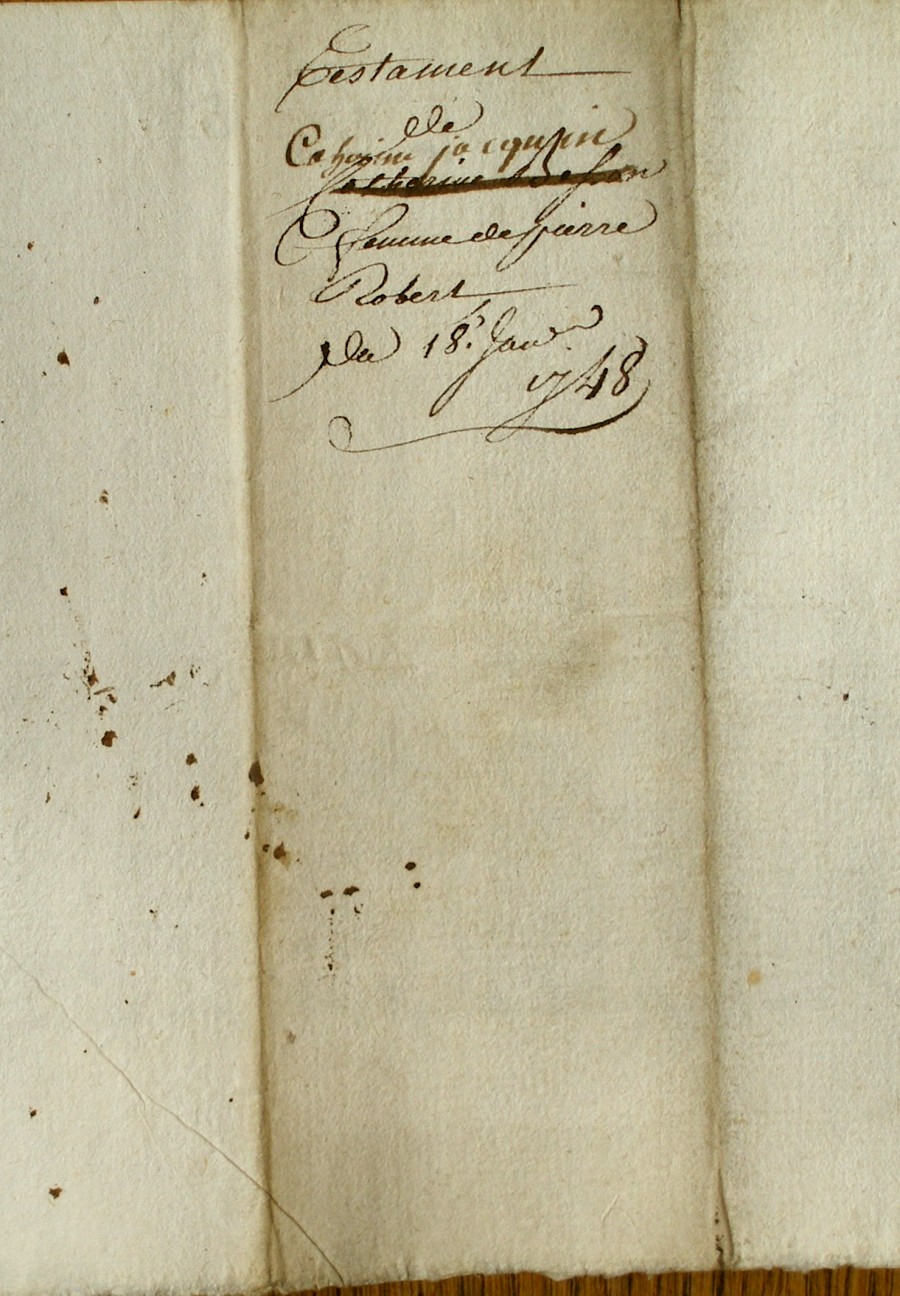 Testament
de
Catherine jacquin
Catherine
femme de pierre
Robert
Du 18e. Janer
1748